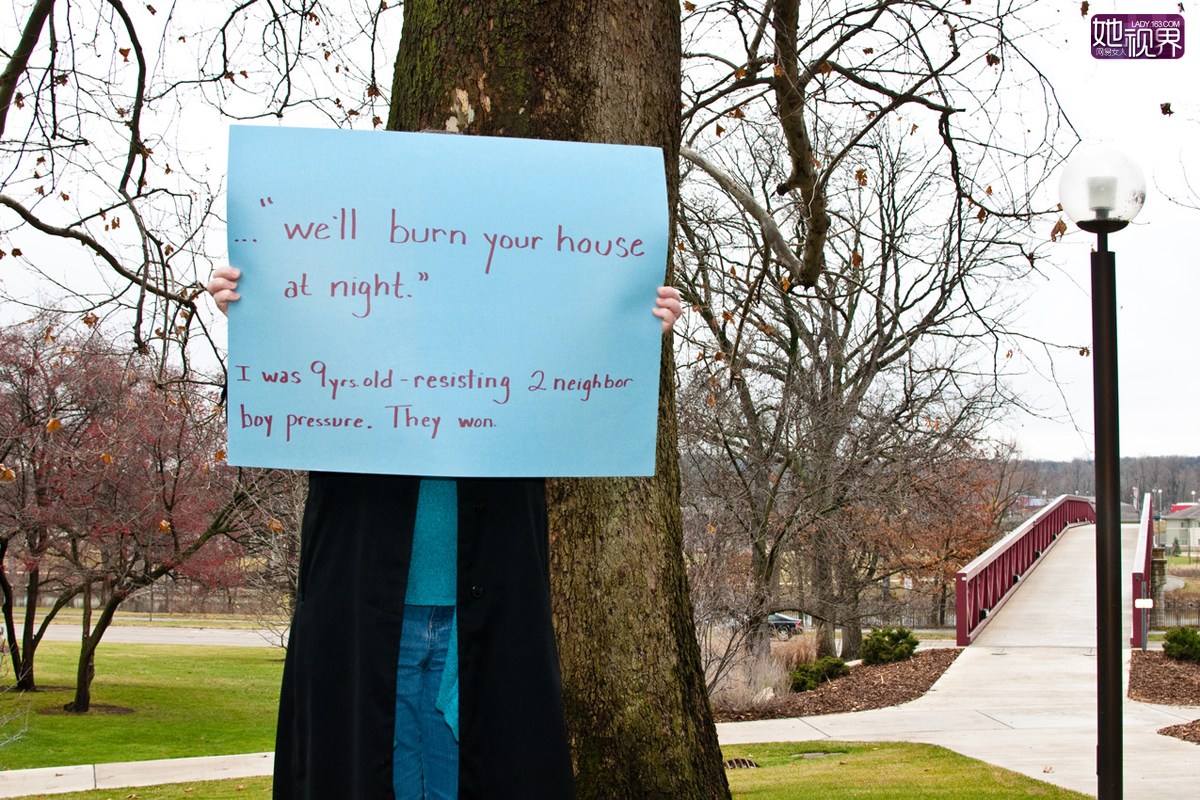 LADY.163.COM
她视界
网易女人
... "we'll burn your house
at night."
I was 9yrs. old - resisting 2 neighbor
boy pressure. They won.